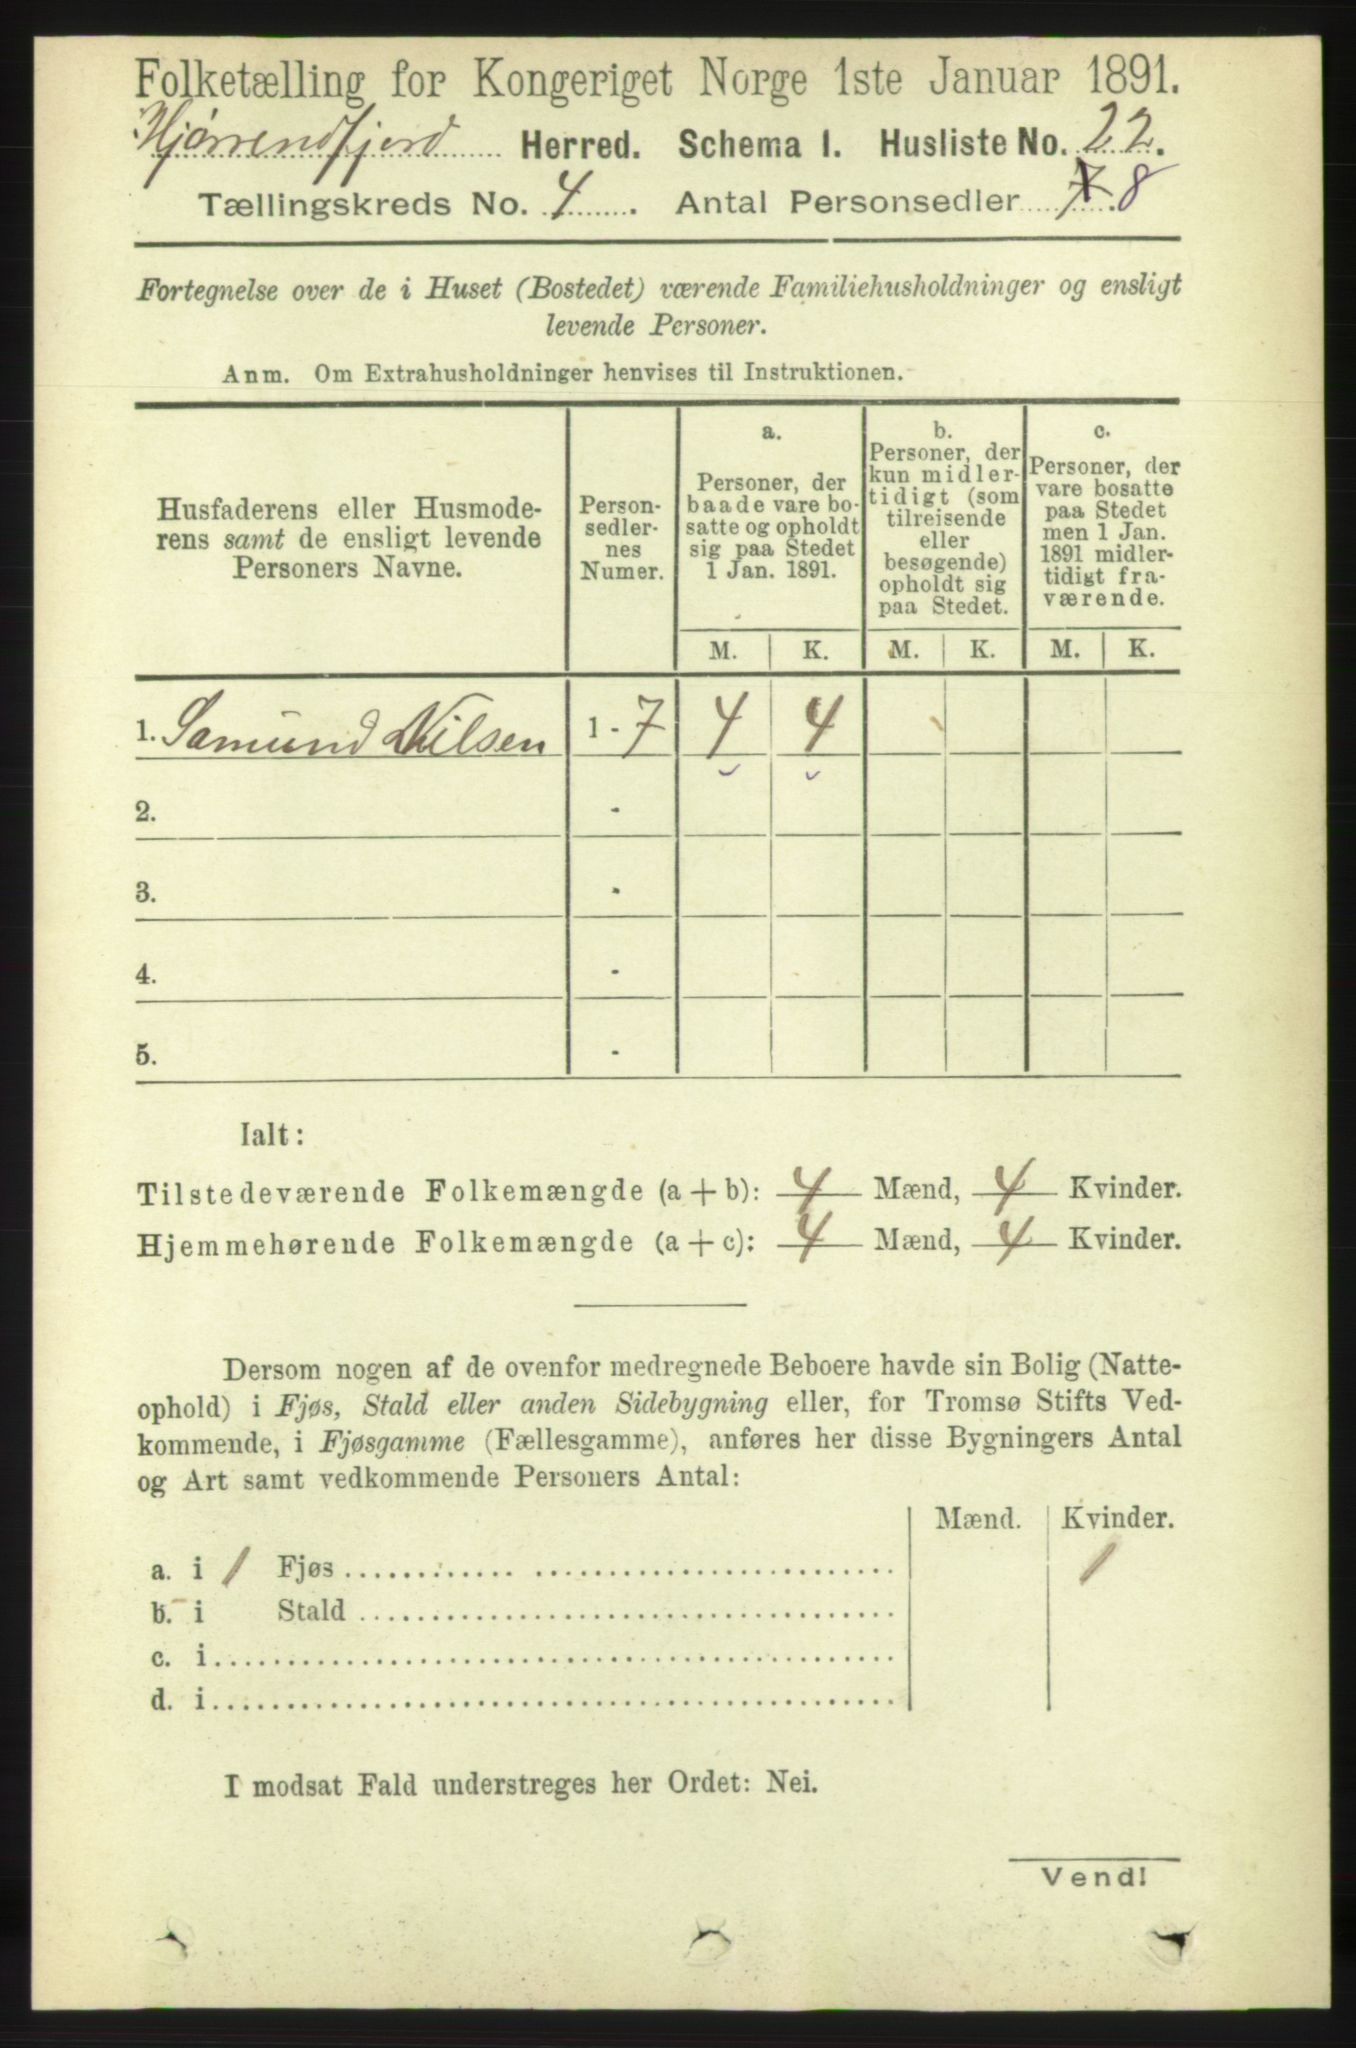 Folketælling for Kongeriget Norge 1ste Januar 1891.
Hjørrendfjord Herred. Schema 1. Husliste No. 22.
Tællingskreds No. 4. Antal Personsedler 7 8
Fortegnelse over de i Huset (Bostedet) værende Familiehusholdninger og ensligt
levende Personer.
Anm. Om Extrahusholdninger henvises til Instruktionen.
Husfaderens eller Husmode-
rens samt de ensligt levende
Personers Navne.
Person-
sedler-
nes
Numer.
a.
Personer, der
baade vare bo-
satte og opholdt
sig paa Stedet
1 Jan. 1891.
b.
Personer, der
kun midler-
tidigt (som
tilreisende
eller
besøgende)
opholdt sig
paa Stedet.
c.
Personer, der
vare bosatte
paa Stedet
men 1 Jan.
1891 midler-
tidigt fra-
værende.
M. K. M. K. M. K.
1. Samund Nilsen 1 - 7 4 4
2. -
3. -
4. -
5. -
Ialt:
Tilstedeværende Folkemængde (a + b): 4 Mænd, 4 Kvinder.
Hjemmehørende Folkemængde (a + c): 4 Mænd, 4 Kvinder.
Dersom nogen af de ovenfor medregnede Beboere havde sin Bolig (Natte-
ophold) i Fjøs, Stald eller anden Sidebygning eller, for Tromsø Stifts Ved-
kommende, i Fjøsgamme (Fællesgamme), anføres her disse Bygningers Antal
og Art samt vedkommende Personers Antal:
Mænd. Kvinder.
a. i 1 Fjøs 1
b. i Stald
c. i
d. i
I modsat Fald understreges her Ordet: Nei.
Vend!